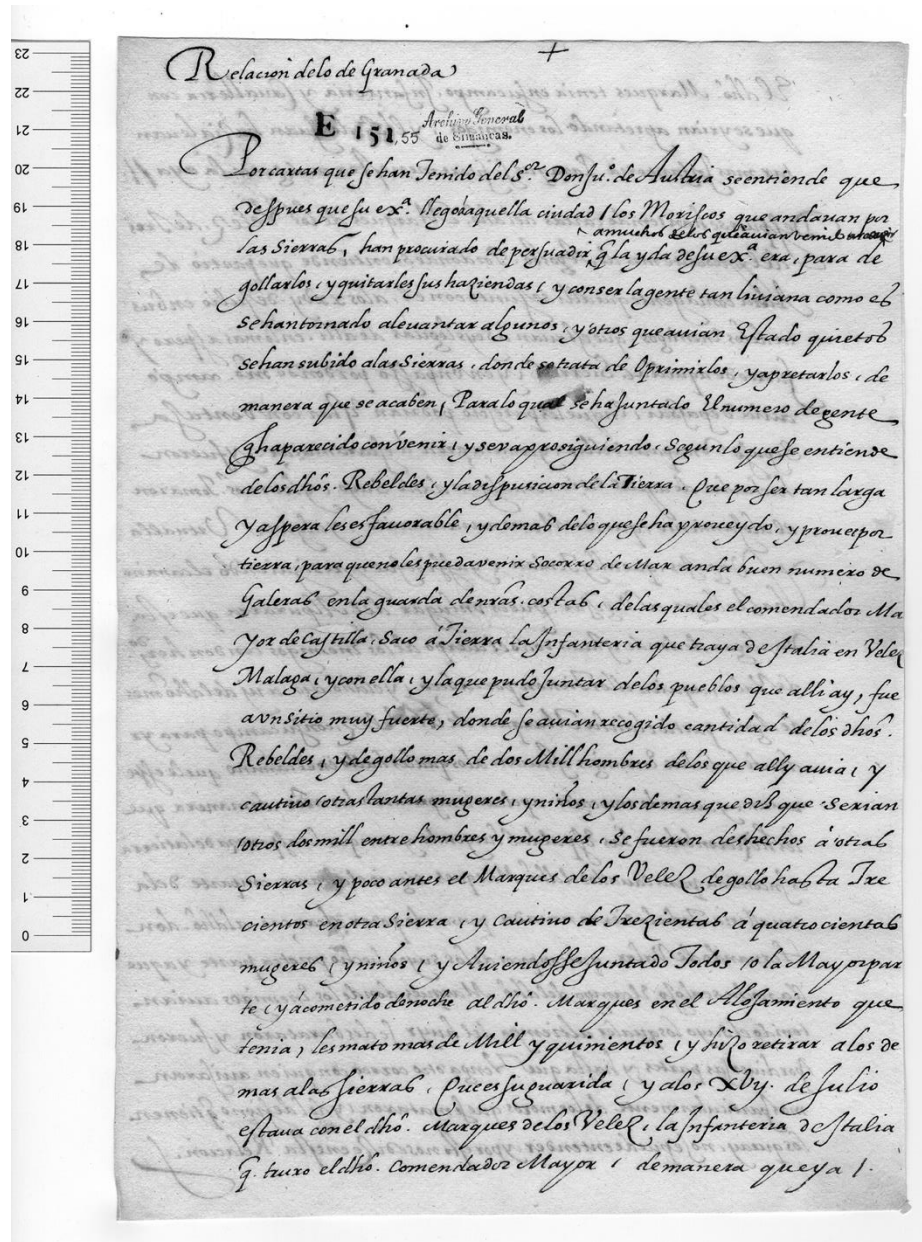 +
Relacion delo de Granada
E 151,55 Archivo General
de Simancas.
Por cartas que se han Tenido del S.or Don Ju.o de Austria se entiende que
despues que su ex.a llego a aquella ciudad / los Moriscos que andavan por
a muchos de los que avian venido
las Sierras, han procurado de persuadir, q̃ la yda de su ex.a era, para de
gollarlos, y quitarles sus haziendas, y con ser la gente tan liviana como es
se han tornado a levantar algunos, y otros que avian Estado quietos
se han subido a las Sierras, donde se trata de Oprimirlos, y apretarlos, de
manera que se acaben, Para lo qual se ha Juntado El numero de gente
q̃ ha parecido convenir, y se va prosiguiendo, Segun lo que se entiende
de los dhos. Rebeldes, y la dispusicion de la Tierra. Que por ser tan larga
y aspera les es favorable, y demas de lo que se ha proveydo, y provee por
tierra, para que no les pueda venir Socorro de Mar anda buen numero de
Galeras en la guarda de nr̃as. costas, de las quales el comendador Ma
yor de Castilla. Saco á Tierra la Infanteria que traya de Italia en Velez
Malaga, y con ella, y la que pudo Juntar de los pueblos que alli ay, fue
a vn sitio muy fuerte, donde se avian recogido cantidad de los dhos.
Rebeldes, y degollo mas de dos Mill hombres de los que ally avia, y
cautivo otras tantas mugeres, y niños, y los demas que diz que Serian
otros dos mill entre hombres y mugeres, Se fueron deshechos á otras
Sierras, y poco antes el Marques de los Velez degollo hasta Tre
cientos en otra Sierra, y Cautivo de Trezientas á quatrocientas
mugeres, y niños, y Aviendosse Juntado Todos / o la Mayor par
te, y acometido de noche al dho. Marques en el Alojamiento que
tenia, les mato mas de Mill y quinientos, y hizo retirar a los de
mas a las sierras, Que es su guarida, y a los xvij. de Julio
estava con el dho. Marques de los Velez, la Infanteria de Italia
q̃. truxo el dho. Comendador Mayor, de manera que ya /.
0
1
2
3
4
5
6
7
8
9
10
11
12
13
14
15
16
17
18
19
20
21
22
23